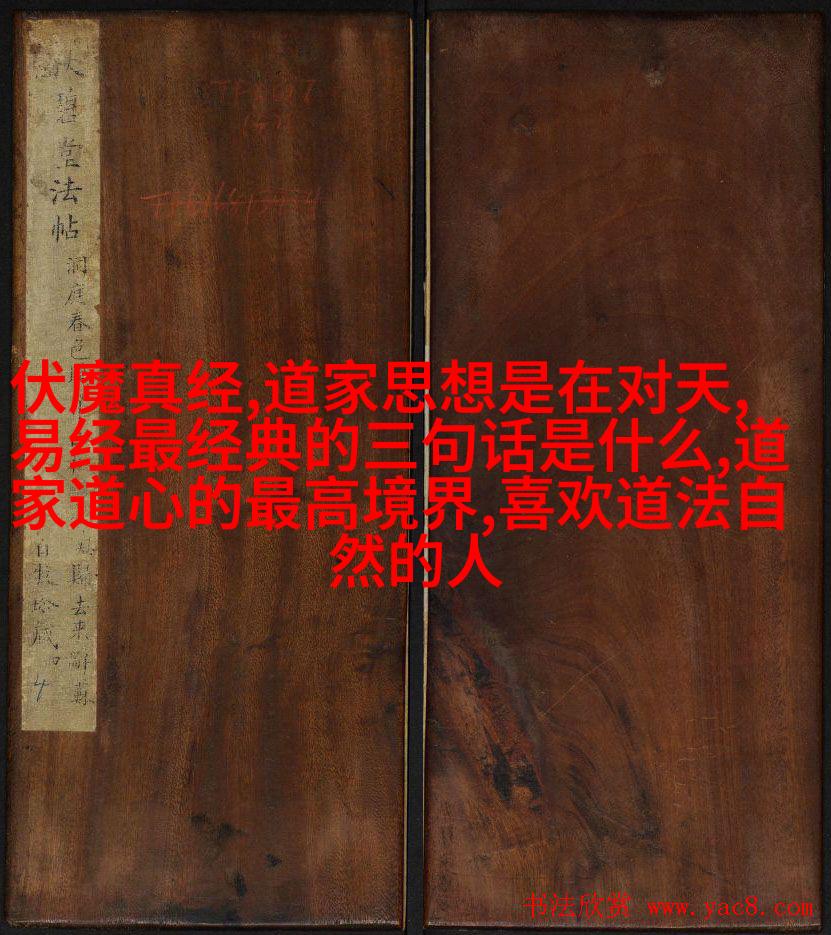 碧堂法帖
洞庭春色
去来辭
伏魔真经,道家思想是在对天,
易经最经典的三句话是什么,道
家道心的最高境界,喜欢道法自
然的人
书法欣赏 www.yac8.com